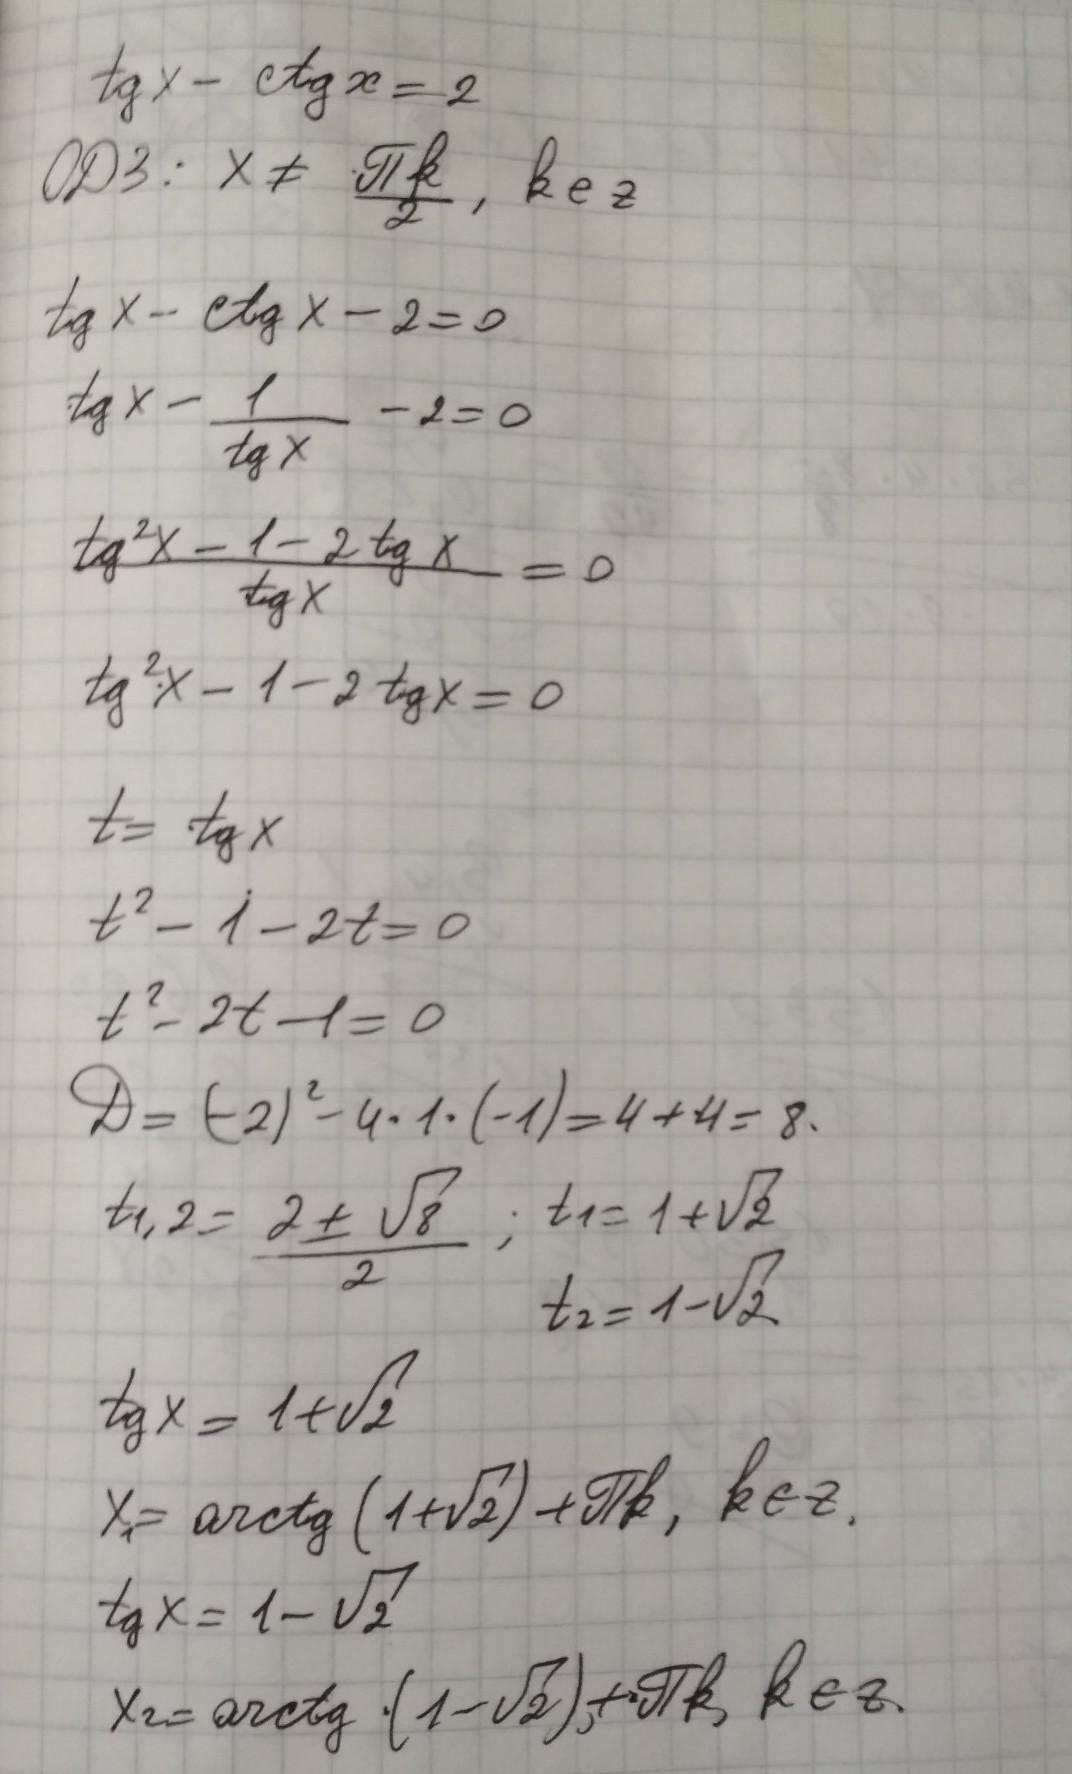 tg x - ctg x = 2
ОДЗ: x ≠ πk/2, k ∈ z
tg x - ctg x - 2 = 0
tg x - 1/tg x - 2 = 0
(tg²x - 1 - 2 tg x)/tg x = 0
tg²x - 1 - 2 tg x = 0
t = tg x
t² - 1 - 2t = 0
t² - 2t - 1 = 0
D = (-2)² - 4·1·(-1) = 4 + 4 = 8.
t1,2 = (2 ± √8)/2 ; t1 = 1 + √2
t2 = 1 - √2
tg x = 1 + √2
x1 = arctg (1 + √2) + πk, k ∈ z.
tg x = 1 - √2
x2 = arctg (1 - √2) + πk, k ∈ z.